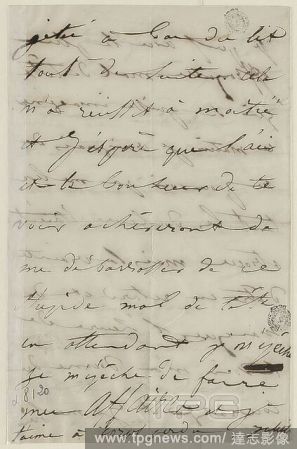 jetée à bas du lit
tout de suite cela
m'a réussi à moitié
et j'espère que l'air
et le bonheur de te
voir achèveront de
me débarrasser de ce
stupide mal de tête
en attendant je
je me dépêche de faire
mes affaires et je
t'aime à
8120
www.tpgnews.com / 達志影像